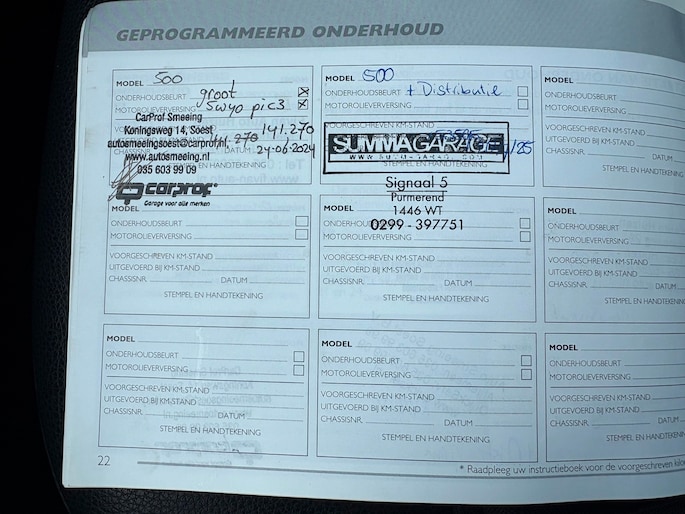 GEPROGRAMMEERD ONDERHOUD
MODEL 500
ONDERHOUDSBEURT groot
MOTOROLIEVERVERSING 5w40 pic3
CarProf Smeeing
Koningsweg 14, Soest
autosmeeingsoest@carprof.nl
www.autosmeeing.nl
035 603 99 09
141.270
DATUM 24-06-2024
STEMPEL EN HANDTEKENING
carprof
Garage voor alle merken
MODEL 500
ONDERHOUDSBEURT + Distributie
MOTOROLIEVERVERSING
VOORGESCHREVEN KM-STAND
SUMMAGARAGE
/25
STEMPEL EN HANDTEKENING
Signaal 5
Purmerend
1446 WT
0299 - 397751
MODEL
ONDERHOUDSBEURT
MOTOROLIEVERVERSING
VOORGESCHREVEN KM-STAND
UITGEVOERD BIJ KM-STAND
CHASSISNR. DATUM
STEMPEL EN HANDTEKENIN
MODEL
ONDERHOUDSBEURT
MOTOROLIEVERVERSING
VOORGESCHREVEN KM-STAND
UITGEVOERD BIJ KM-STAND
CHASSISNR. DATUM
STEMPEL EN HANDTEKENING
MODEL
MOTOROLIEVERVERSING
VOORGESCHREVEN KM-STAND
UITGEVOERD BIJ KM-STAND
CHASSISNR. DATUM
STEMPEL EN HANDTEKENING
MODEL
ONDERHOUDSBEURT
MOTOROLIEVERVERSING
VOORGESCHREVEN KM-STAND
UITGEVOERD BIJ KM-STAND
CHASSISNR. DATUM
STEMPEL EN HANDTEKEN
MODEL
ONDERHOUDSBEURT
MOTOROLIEVERVERSING
VOORGESCHREVEN KM-STAND
UITGEVOERD BIJ KM-STAND
CHASSISNR. DATUM
STEMPEL EN HANDTEKENING
MODEL
ONDERHOUDSBEURT
MOTOROLIEVERVERSING
VOORGESCHREVEN KM-STAND
UITGEVOERD BIJ KM-STAND
CHASSISNR. DATUM
STEMPEL EN HANDTEKENING
MODEL
ONDERHOUDSBEURT
MOTOROLIEVERVERSING
VOORGESCHREVEN KM-STAND
UITGEVOERD BIJ KM-STAND
CHASSISNR. DATUM
STEMPEL EN HANDTEKENIN
22
* Raadpleeg uw instructieboek voor de voorgeschreven kilo